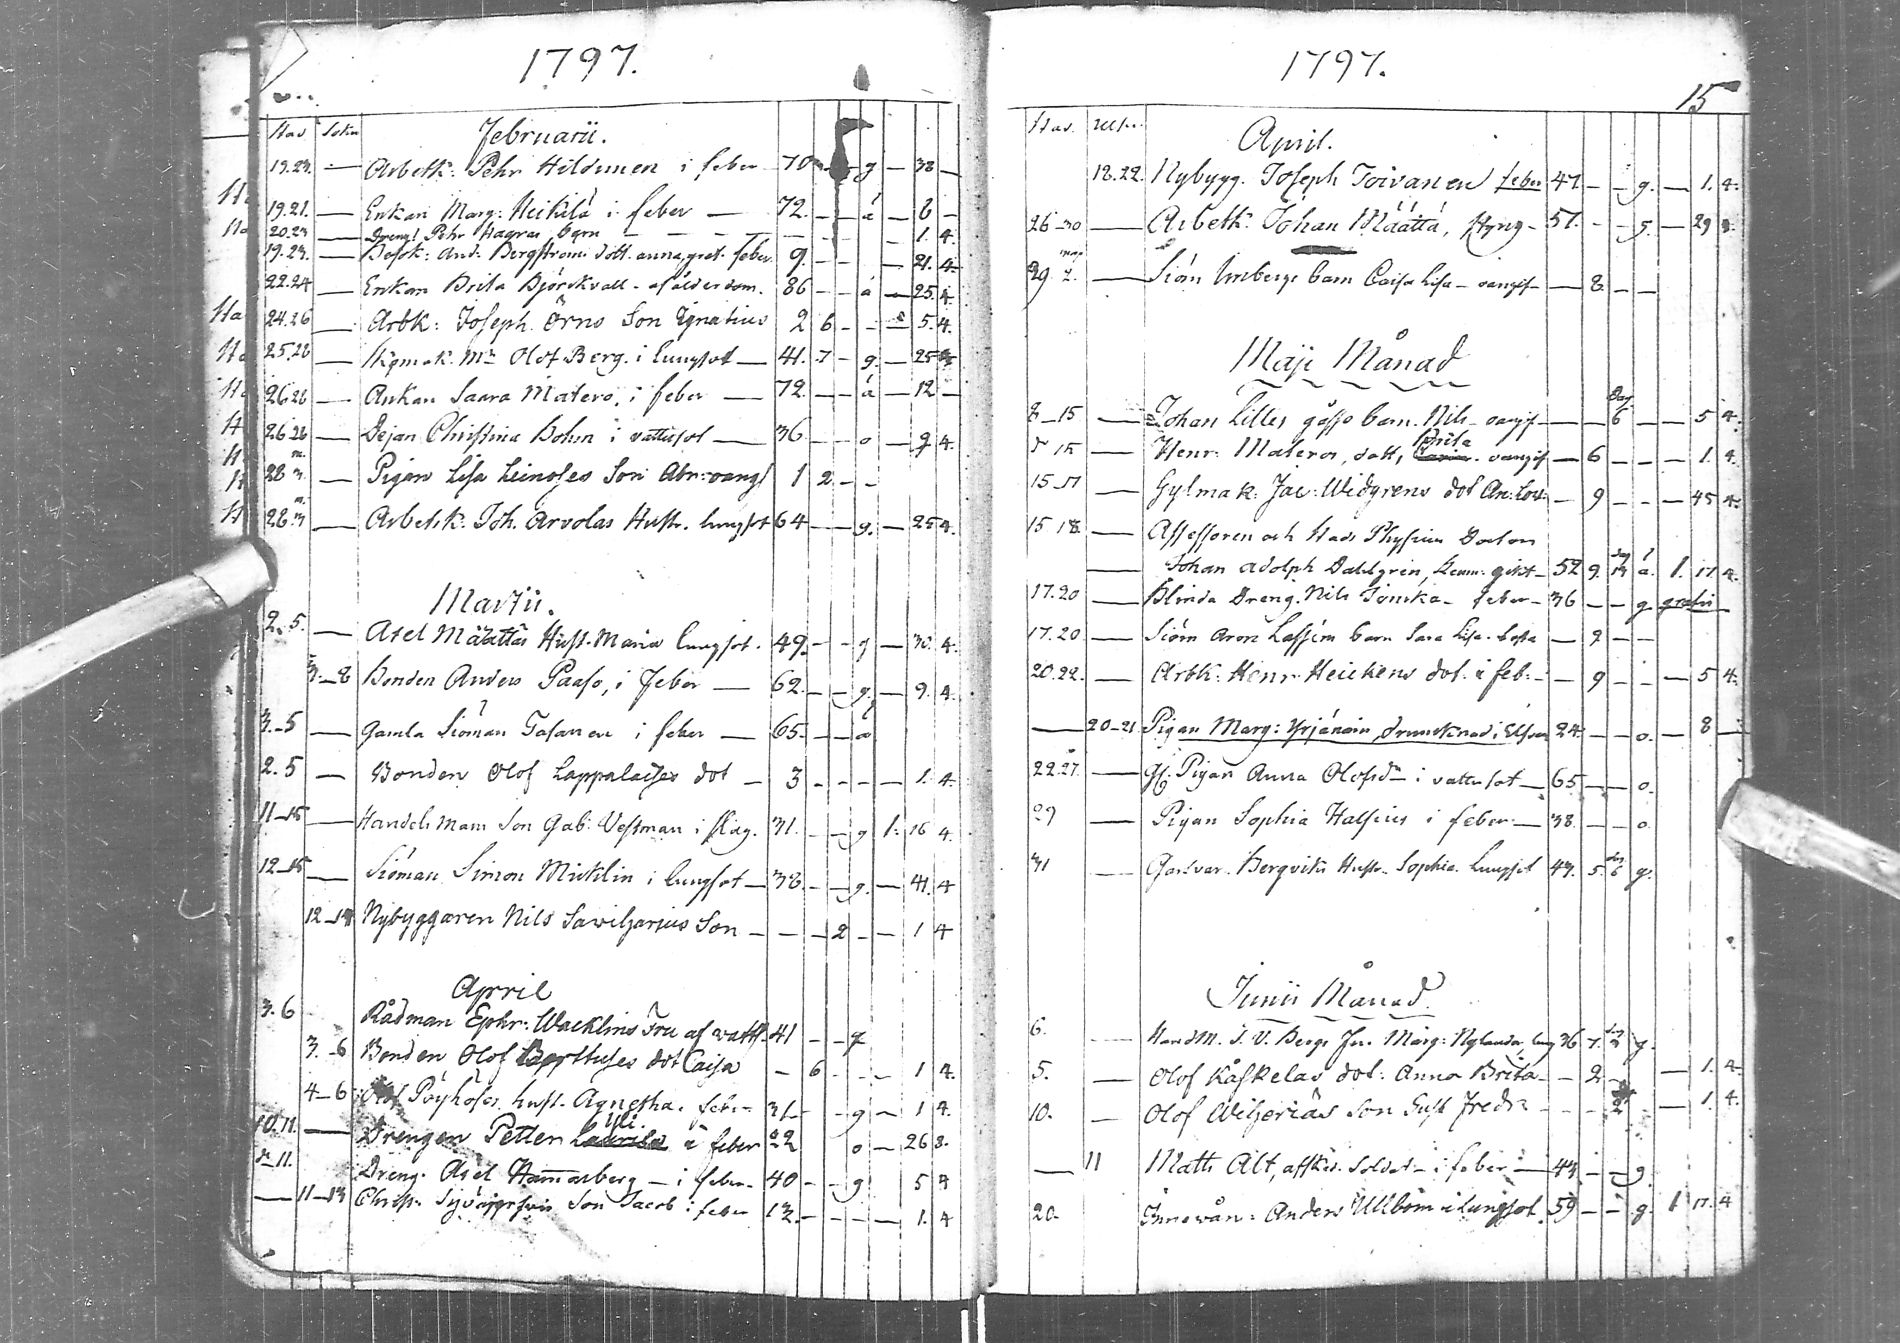 1797.
Stad Sokn Februarii.
19.23. — Arbetk: Pehr Hildunen i feber 70 — g — 38 —
19.21. — Enkan Marg: Heikilä i feber — 72. — — á — 6 —
20.23 — Dreng: Pehr Hagras barn — — — — — 1. 4.
19.23. — Besök: And: Bergströms dott. anna gret. feber 9. — — — 21. 4.
22.24 — Enkan Brita Björckvall - af ålderdom. 86 — — á — 25. 4.
24.26 — Arbk: Joseph Örns Son Ignatius 2 6 — — — 5. 4.
25.28 — Mr Olof Berg. i lungsot — 41. 7 — g. — 25
26 28 — Ankan Saara Matero, i feber — 72. — — á — 12 —
26.28 — Dejan Christina Bohm i vattusot — 36 — — o — 9 4.
28 3 — Pigan Lisa Leinoses Son Abr: 1 2 — —
28. 3 — Arbetsk. Joh. Arvolas Hustr. lungsot 64 — — g. — 25 4.
Martii.
2. 5. — Axel Määttäs Hust. Maria lungsot. 49. — — g — 30. 4.
3. — 8 Bonden Anders Paaso, i feber — 62. — — g. — 9. 4.
3. — 5 — Gamla Siöman Tafanen i feber — 65 — — á
2. 5 — Bonden Olof Lappalaises dot — 3 — — — — 1. 4.
11 — 15 — Handels mans Son Gab: Vestman i slag. 31. — — g 1. 16 4.
12 — 15 — Siöman Simon Micklin i lungsot — 38. — — g. — 41. 4
12 — Nybyggaren Nils Sawiljarjus Son — — — 2 — — 1 4
April
3. 6 Rådman Ephr: Wacklins Fru af 41 — — g
3. — 6 Bonden Olof dot Caisa — 6 — — — 1 4.
4 — 6 Olof Pöyhöses hust. Agnetha. feber 31 — — g — 1 4.
10.11. — Drengen Petter i feber 22 o — 26 8.
11. Dreng. Axel Hammarberg — i feber 40 — — g 5 4
— 11 — 13 Christ. Son Jacob i feber 13. — — — — 1. 4
1797.
15
Stad. April.
18.22. Nybygg. Joseph Toivanen feber 47 — — g. — 1. 4.
26 — 30 — Arbetk. Johan Määttä, 51. — — g. — 29
29 2. — Siöm barn Caisa Lisa — — 8 — —
Maji Månad
8 — 15 — Johan Lilles barn. Nils — — 6 — — 5 4.
15 — Henr: Matero, dott, Brita — 6 — — — 1. 4.
15 — 17 — Jac: Widgrens dot An: Lov: — 9 — — — 45 4.
15 18. — Assessoren och Stads Physicus Doctorn
— Johan Adolph Dahlgren, 52 9. 14 á. 1. 17 4.
17.20 — Blinda Dreng. Nils feber — 36 — — g gratis
17.20 — Siöm Aron Lassins barn Sara Lisa. — 9 — —
20.22. — Arbk: Henr: Heickens dot. i feb: — — 9 — — — 5 4.
— 20 — 21 Pigan Marg: Yrjänäin, drunknad i Elfven 24 — — o. — 8 —
22.27. — Gl. Pigan Anna Olofsdr i vattusot — 65 — — o.
29 — Pigan Sophia Halsius i feber — 38. — — o.
31 — Garfvar. Bergviks Hustr. Sophia. Lungsot 43. 5 6 g.
Junii Månad.
6. Handm. J. V. Bergs Marg: Nylanda, lung 36 7. g.
5. — Olof Kåskelas dot: Anna Brita — — 2 — — 1. 4.
10. — Olof Wiljeriäs Son Gust Fredr — — — 2 — 1. 4.
— 11 Matts Ält, affsk. Soldat — i feber — 43 — — g.
20. Innevån: Anders Ullbom i Lungsot 59 — — g 1 17. 4